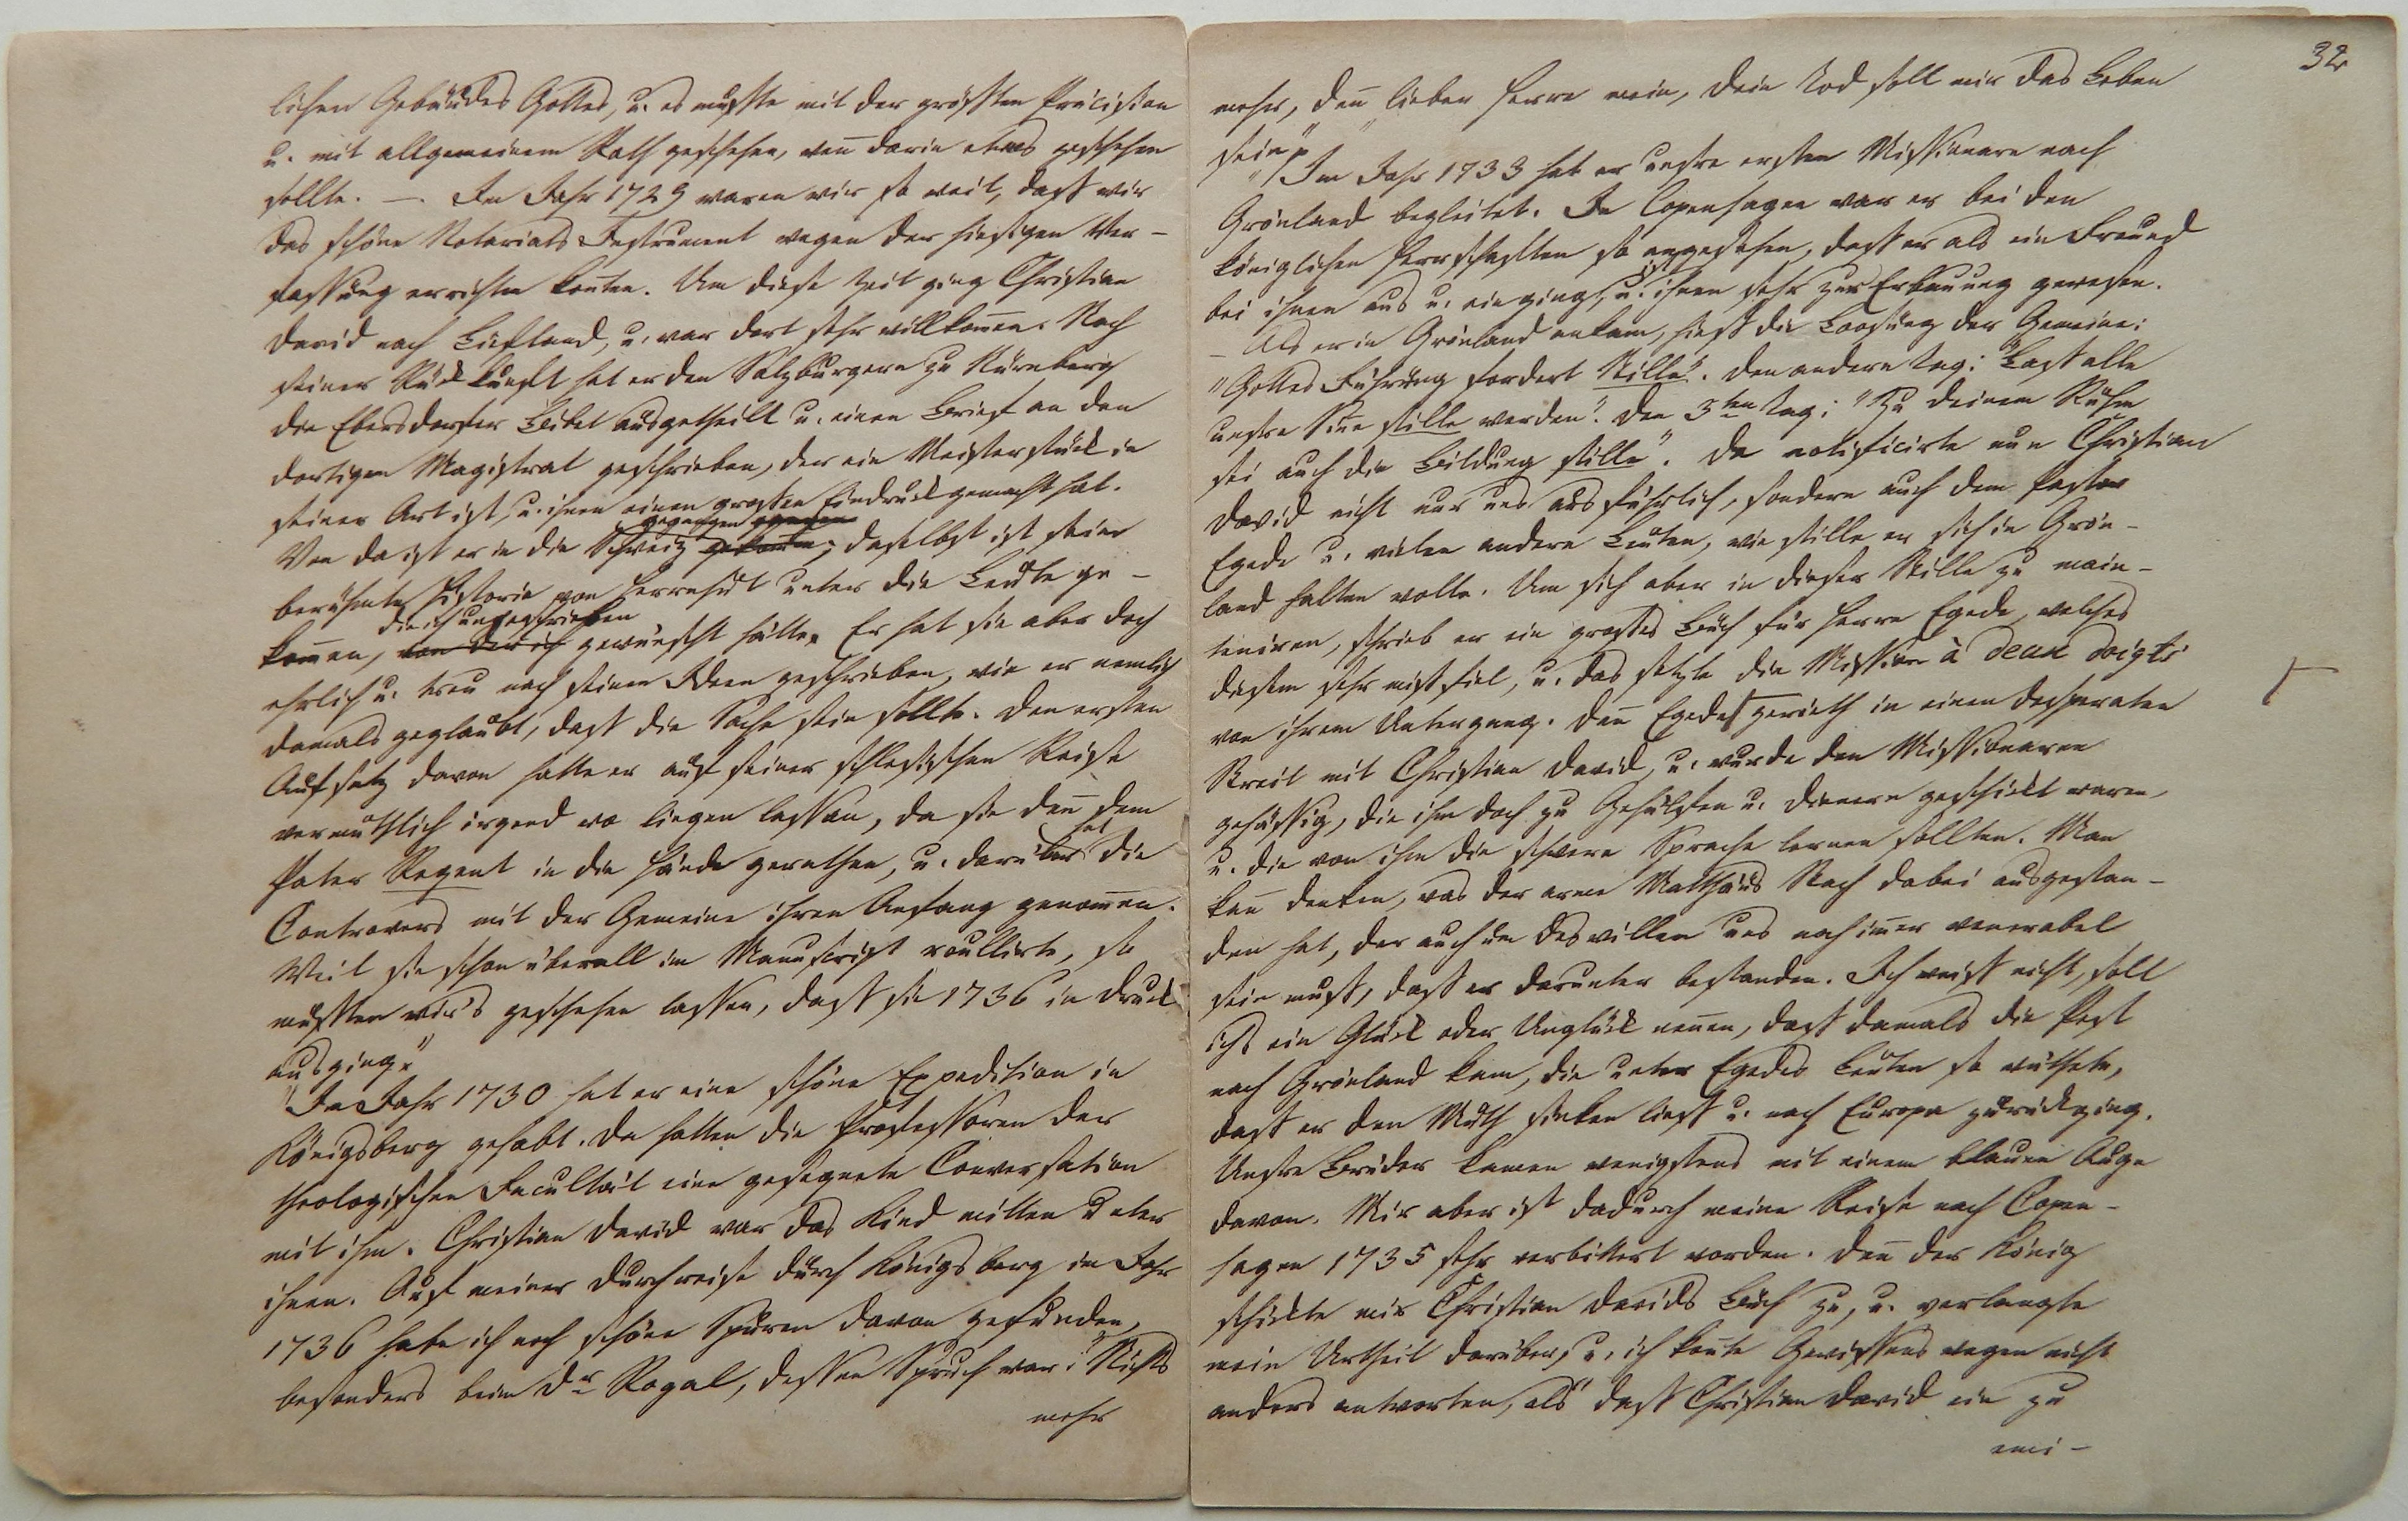 lichen Gebäudes Gottes, u. es mußte mit der größten Präcision
u. mit allgemeinem Rath geschehen, wen̄ darin etwas geschehen
sollte. —. Im Jahr 1729 waren wir so weit, daß wir
das schöne Notariats Instrument wegen der hiesigen Ver-
fassung errichten konnten. Um diese Zeit ging Christian
David nach Liefland, u. war dort sehr willkom̄en. Nach
seiner Rückkunft hat er den Salzburgern zu Nürnberg
die Ebersdorfer Bibel ausgetheilt u. einen Brief an den
dortigen Magistrat geschrieben, der ein Meisterstück in
seiner Art ist, u. ihnen einen großen Eindruck gemacht hat.
Von da ist er in die Schweiz gegangen; daselbst ist seine
berühmte Historie von Herrnhut unter die Leute ge-
kom̄en, die ich ungeschrieben gewünscht hätte. Er hat sie aber doch
ehrlich u. treu nach seinen Ideen geschrieben, wie er nemlich
damals geglaubt, daß die Sache sein sollte. Den ersten
Aufsatz davon hatte er auf seiner schlesischen Reise
vermuthlich irgend wo liegen lassen, da sie den̄ dem
Pater Regent in die Hände gerathen, u. darüber hat die
Controvers mit der Gemeine ihren Anfang genom̄en.
Weil sie schon überall im Manuscript roullirte, so
mußten wir's geschehen lassen, daß sie 1736 in Druck
ausging."
"Im Jahr 1730 hat er eine schöne Expedition in
Königsberg gehabt. Da hatten die Professoren der
theologischen Facultät eine gesegnete Conversation
mit ihm. Christian David war das Kind mitten unter
ihnen. Auf meiner Durchreise durch Königsberg im Jahr
1736 habe ich noch schöne Spuren davon gefunden,
besonders beim Dr Rogal, dessen Spruch war: "Nichts
mehr
32
mehr, den̄ lieber Herre mein, dein Tod soll mir das Leben
sein"."
"Im Jahr 1733 hat er unsre ersten Missionare nach
Grönland begleitet. In Copenhagen war er bei den
königlichen Herrschaften so angesehen, daß er als ein Freund
bei ihnen aus u. ein ging, u. ist ihnen sehr zur Erbauung gewesen.
— Als er in Grönland ankam, hieß die Loosung der Gemeine:
"Gottes Führung fordert Stille". Den andern Tag: "Laß alle
unsre Sin̄e stille werden". Den 3ten Tag: "Zu deinem Ruhm
sei auch die Bildung stille". Da notificirte nun Christian
David nicht nur uns ausführlich, sondern auch dem Pastor
Egede u. vielen andern Leuten, wie stille er sich in Grön-
land halten wolle. Um sich aber in dieser Stille zu main-
teniren, schrieb er ein großes Buch für Herrn Egede, welches
diesem sehr mißfiel, u. das setzte die Mission à deux doigts
von ihrem Untergang. Den̄ Egede gerieth in einen desperaten
Streit mit Christian David, u. wurde den Missionaren
gehässig, die ihm doch zu Gehülfen u. Dienern geschickt waren,
u. die von ihm die schwere Sprache lernen sollten. Man
kan̄ denken, was der arme Matthäus Stach dabei ausgestan-
den hat, der auch um deswillen uns noch im̄er venerabel
sein muß, daß er darunter bestanden. Ich weiß nicht, soll
ichs ein Glück oder Unglück nen̄en, daß damals die Pest
nach Grönland kam, die unter Egedes Leuten so wüthete,
daß er den Muth sinken ließ u. nach Europa zurückging.
Unsre Brüder kamen wenigstens mit einem blauen Auge
davon. Mir aber ist dadurch meine Reise nach Copen-
hagen 1735 sehr verbittert worden. Den̄ der König
schickte mir Christian Davids Buch zu, u. verlangte
mein Urtheil darüber, u. ich kon̄te Gewissens wegen nicht
anders antworten, als daß Christian David ein zu
emi-